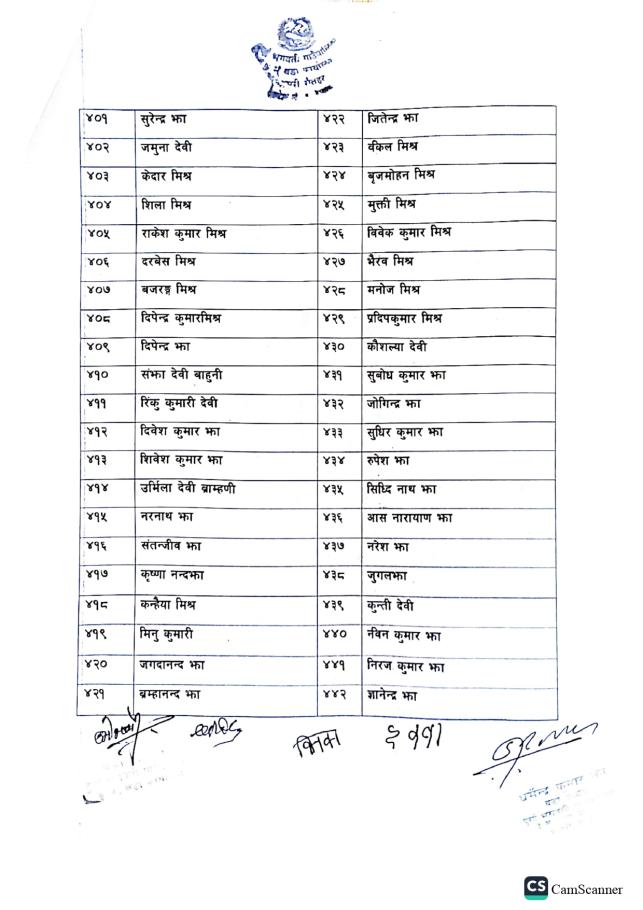 ४०१ सुरेन्द्र झा ४२२ जितेन्द्र झा
४०२ जमुना देवी ४२३ वकिल मिश्र
४०३ केदार मिश्र ४२४ बृजमोहन मिश्र
४०४ शिला मिश्र ४२५ मुक्ती मिश्र
४०५ राकेश कुमार मिश्र ४२६ विवेक कुमार मिश्र
४०६ दरबेस मिश्र ४२७ भैरव मिश्र
४०७ बजरङ्ग मिश्र ४२८ मनोज मिश्र
४०८ दिपेन्द्र कुमारमिश्र ४२९ प्रदिपकुमार मिश्र
४०९ दिपेन्द्र झा ४३० कौशल्या देवी
४१० संझा देवी बाहुनी ४३१ सुबोध कुमार झा
४११ रिंकु कुमारी देवी ४३२ जोगिन्द्र झा
४१२ दिवेश कुमार झा ४३३ सुधिर कुमार झा
४१३ शिवेश कुमार झा ४३४ रुपेश झा
४१४ उर्मिला देवी ब्राम्हणी ४३५ सिध्दि नाथ झा
४१५ नरनाथ झा ४३६ आस नारायाण झा
४१६ संतन्जीव झा ४३७ नरेश झा
४१७ कृष्णा नन्दझा ४३८ जुगलझा
४१८ कन्हैया मिश्र ४३९ कुन्ती देवी
४१९ मिनु कुमारी ४४० नविन कुमार झा
४२० जगदानन्द झा ४४१ निरज कुमार झा
४२१ ब्रम्हानन्द झा ४४२ ज्ञानेन्द्र झा
धर्मेन्द्र कुमार झा
CS CamScanner